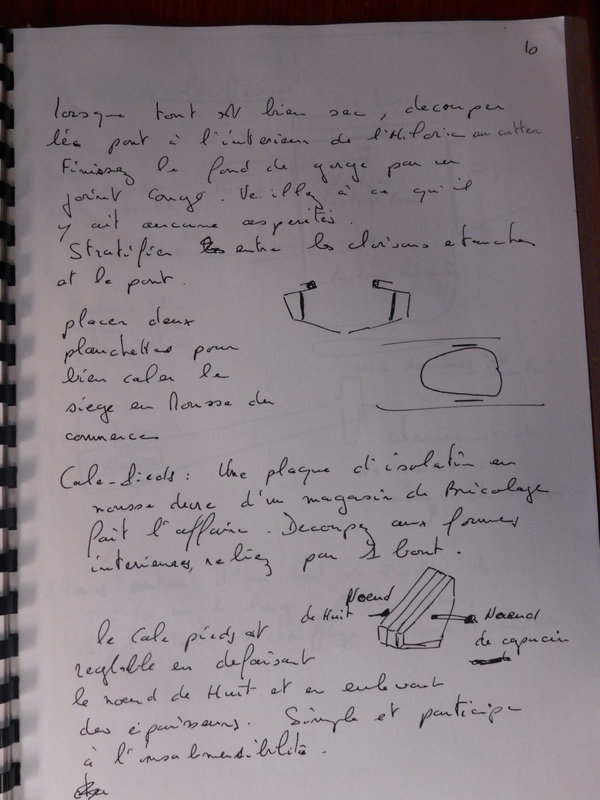 10
lorsque tout est bien sec, decouper
léa pont à l'interieur de l'Hiloire au cutter
Finissez le fond de gorge par un
joint congé. Veillez à ce qu'il
y ait aucune asperités.
Stratifier entre les cloisons etanches
et le pont.
placer deux
planchettes pour
bien caler le
siege en Mousse du
commerce
Cale-Pieds : Une plaque d'isolation en
mousse dure d'un magasin de Bricolage
fait l'affaire. Decoupez aux formes
interieures, reliez par 1 bout.
Noeud
de Huit
Noeud
de capucin
le Cale pieds est
reglable en defaisant
le noeud de Huit et en enlevant
des épaisseurs. Simple et participe
à l'insubmersibilité.